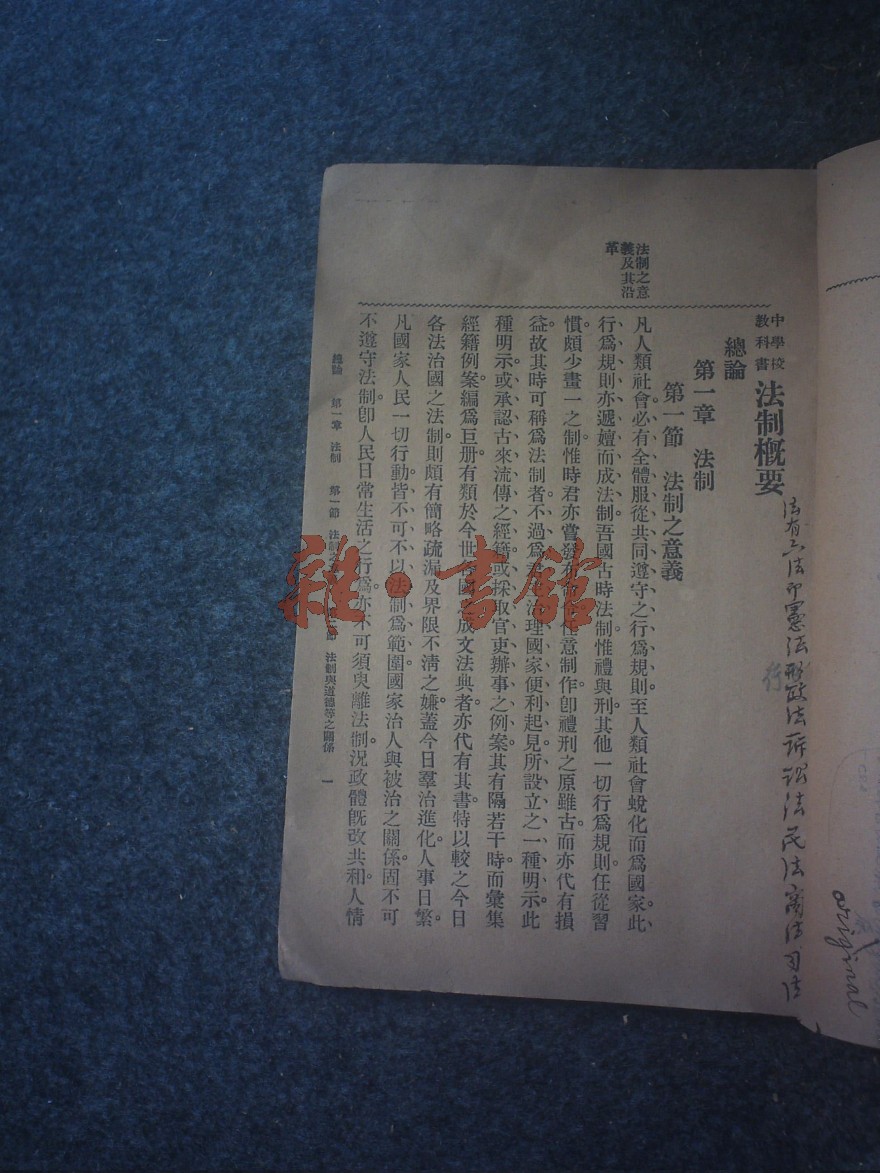 中學校
教科書 法制概要
總論
第一章 法制
第一節 法制之意義
法制之意
義及其沿
革
凡人類社會必有全體服從共同遵守之行爲規則。至人類社會蛻化而爲國家。此
行爲規則亦遞嬗而成法制。吾國古時法制惟禮與刑。其他一切行爲規則。任從習
慣。頗少畫一之制。惟時君亦嘗發布 任意制作。卽禮刑之原雖古。而亦代有損
益。故其時可稱爲法制者。不過爲 治理國家便利起見所設立之一種明示。此
種明示。或承認古來流傳之經籍。或採取官吏辦事之例案。其有隔若干時。而彙集
經籍例案。編爲巨册。有類於今世 國 成文法典者。亦代有其書。特以較之今日
各法治國之法制。則頗有簡略疏漏及界限不清之嫌。蓋今日羣治進化。人事日繁。
凡國家人民一切行動。皆不可不以法制爲範圍。國家治人與被治之關係。固不可
不遵守法制。卽人民日常生活之行爲。亦不可須臾離法制。況政體旣改共和。人情
總論 第一章 法制 第一節 法制之 節 法制與道德等之關係 一
法有六法卽憲法 政法訴訟法民法商法司法
行
original
雜·書館